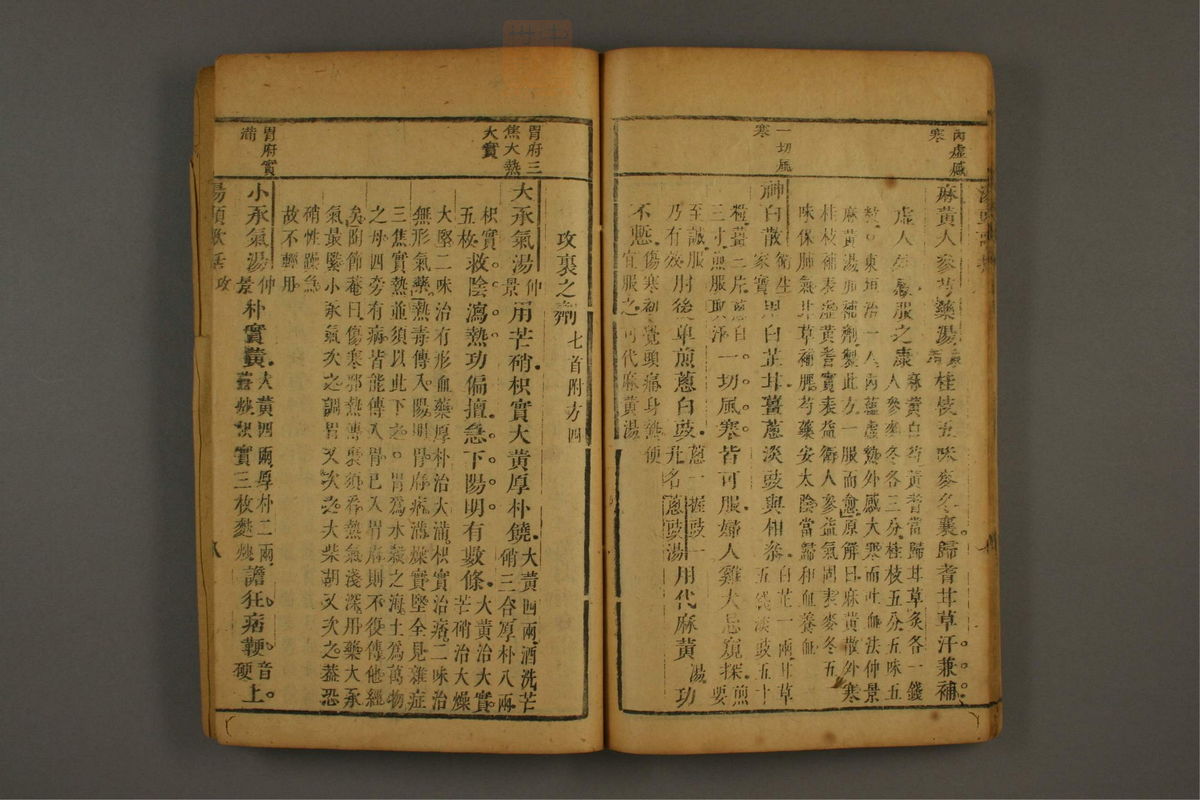 內虛感
寒
麻黃人參芍藥湯
桂枝五味麥冬襄歸耆甘草汗兼補
虛人外感服之康
麻黃白芍黃耆當歸甘草炙各一錢
人參麥冬各三分桂枝五分五味五
東垣治一人內蘊虛熱外感大寒而吐血法仲景
麻黃湯加補劑製此方一服而愈原解曰麻黃散外寒
桂枝補表虛黃耆實表益衛人參益氣固表麥冬五
味保肺氣甘草補脾芍藥安太陰當歸和血養血
一切風
寒
神白散
衛生
家寶
用白芷甘薑蔥淡豉與相參
白芷一兩甘草
五錢淡豉五十
粒薑三片蔥白
三寸煎服取汗
一切風寒皆可服婦人雞犬忌窺探
煎
要
至誠服
乃有效
肘後單煎蔥白豉
蔥一握豉一
升名蔥豉湯
用代麻黃
湯
功
不慝
傷寒初覺頭痛身熱便
宜服之可代麻黃湯
攻裏之劑
七首附方四
胃府三
焦大熱
大實
大承氣湯
仲
景
用芒硝枳實大黃厚朴饒
大黃四兩酒洗芒
硝三合厚朴八兩
枳實
五枚
救陰瀉熱功偏擅急下陽明有數條
大黃治大實
芒硝治大燥
大堅二味治有形血藥厚朴治大滿枳實治痞二味治
無形氣藥熱毒傳入陽明胃府痞滿燥實堅全見雜症
三焦實熱並須以此下之胃為水穀之海土為萬物
之母四旁有病皆能傳入胃已入胃府則不復傳他經
矣陶節菴曰傷寒邪熱傳裏須看熱氣淺深用藥大承
氣最緊小承氣次之調胃又次之大柴胡又次之蓋恐
硝性燥急
故不輕用
胃府實
滿
小承氣湯
仲
景
朴實黃
大黃四兩厚朴二兩
薑炒枳實三枚麩炒
譫狂痞鞕
音
硬
上
湯頭歌括
攻
八